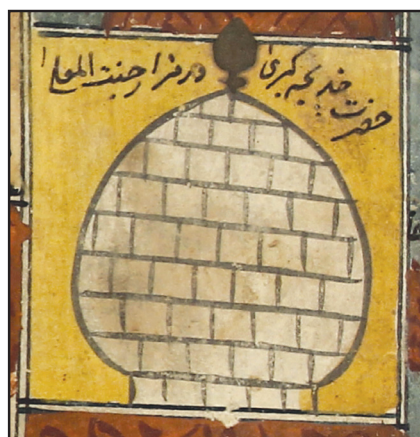 حضرت خدیجه کبری در مزار جنت المعلا